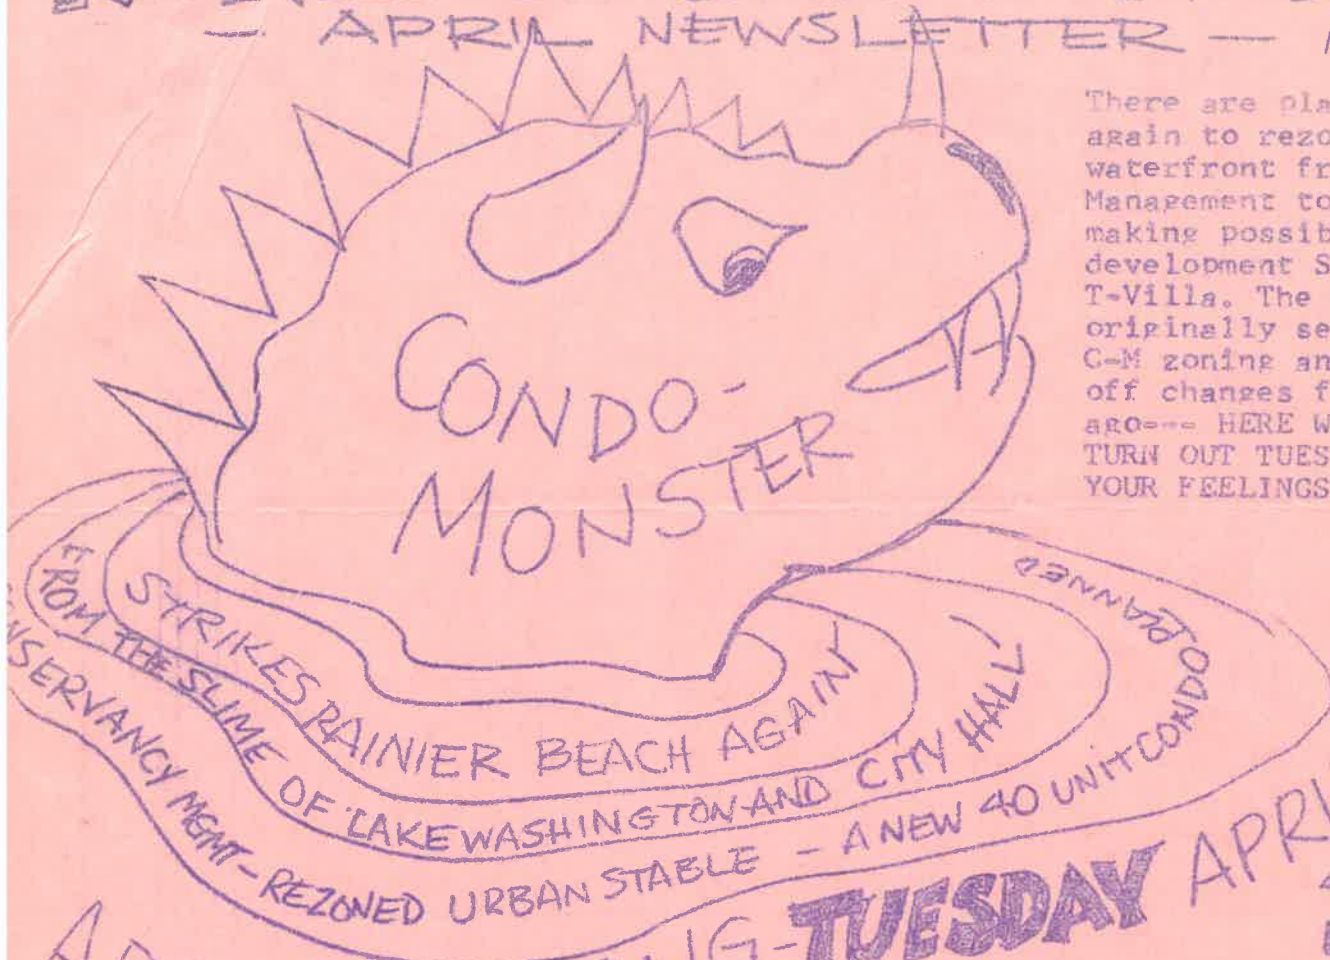 — APRIL NEWSLETTER —
There are pla
again to rezo
waterfront fr
Management to
making possib
development S
T-Villa. The
originally se
C-M zoning an
off changes f
ago--- HERE W
TURN OUT TUES
YOUR FEELINGS
CONDO-
MONSTER
STRIKES RAINIER BEACH AGAIN
FROM THE SLIME OF LAKE WASHINGTON AND CITY HALL
NSERVANCY MGMT - REZONED URBAN STABLE - A NEW 40 UNIT CONDO PLANNED
G-TUESDAY APRI